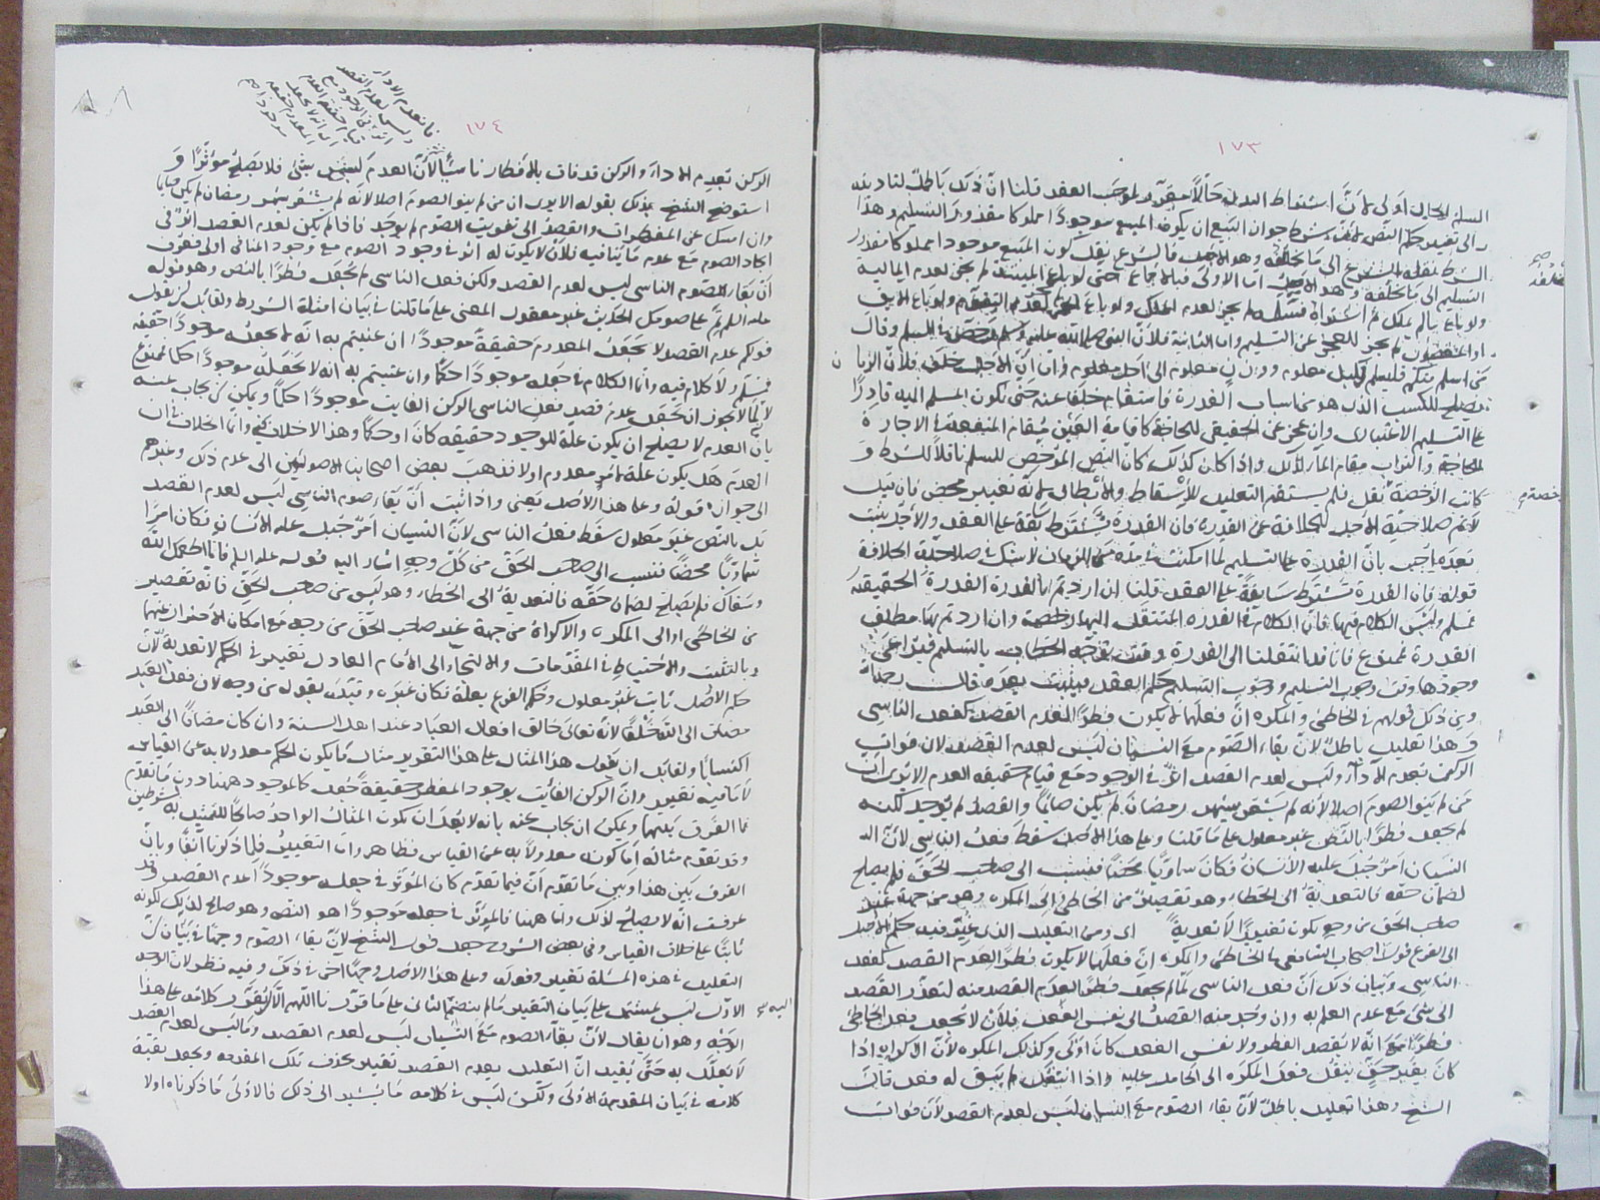 ١٧٣
السلم الحال أولى لأنّ اسقاط البدل حالاً لموجب العقد قلنا انّ ذلك باطل لتاديته
الى تغيير حكم النص لأن شرط جواز البيع ان يكون المبيع موجودا مملوكا مقدور التسليم وهذا
الشرط الى ما يخلفه وهو الاجل فالشرع نقل كون المبيع موجودا مملوكا مقدور
التسليم الى ما يخلفه وهو الاجل اما الاولى فبالاجماع حتى لو باع الميتة لم يجز لعدم المالية
ولو باع مالم يملك ثم اشتراه لم يجز لعدم الملك ولو باع الابق
او لم يجز للعجز عن التسليم واما الثانية فلأن النبي صلى الله عليه رخص في السلم وقال
من اسلم منكم فليسلم في كيل معلوم ووزن معلوم الى اجل معلوم واما ان الاجل خلف فلأن الزمان
يصلح للكسب الذى هو من اسباب القدرة فاستقام خلفا عنه حتى يكون المسلم اليه قادرا
على التسليم الاعتبارى وان عجز عن الحقيقى للحاجة كاقامة العين مقام المنفعة في الاجارة
للحاجة والتراب مقام الماء لذلك واذا كان كذلك كان النص المرخص للسلم ناقلا للشرط و
كانت الرخصة نقل فلم يستقم التعليل للاسقاط والابطال لانه تغيير محض فان قيل
لا نم صلاحية الاجل للخلافة عن القدرة فان القدرة تشترط سابقة على العقد والاجل يثبت
بعده اجيب بان القدرة على التسليم لما امكنت في مدة من الزمان لا شك في صلاحية الخلافة
قوله فان القدرة تشترط سابقة على العقد قلنا ان اردتم بالقدرة القدرة الحقيقية
فمسلم وليس الكلام فيها فان الكلام في القدرة المنتقل اليها رخصة وان اردتم بها مطلق
القدرة فممنوع فانا قد انتقلنا الى القدرة وقت توجه الخطاب بالتسليم فيراعى
وجودها وقت وجوب التسليم ووجوب التسليم حكم العقد فيثبت بعده قال رحمه الله
ومن ذلك قولهم في الخاطئ والمكره انّ فعلهما لا يكون فطرا لعدم القصد كفعل الناسى
وهذا تعليل باطل لأنّ بقاء الصوم مع النسيان ليس لعدم القصد لان فوات
الركن يعدم الاداء وليس لعدم القصد اثر في الوجود مع قيام حقيقة العدم الا يرى ان
من لم ينو الصوم اصلا لأنه لم يشعر بشهر رمضان لم يكن صائما والقصد لم يوجد لكنه
لم يجعل فطرا بالنص غير معلول على ما قلنا وعلى هذا الاصل سقط فعل الناسى لأنّ
النسيان امر جبل عليه الانسان فكان سماويا محضا فنسب الى صاحب الحق فلم يصلح
لضمان حقه فالتعدية الى الخطاء وهو تقصير من الخاطئ او الى المكره وهو من جهة غير
صاحب الحق من وجه يكون تغييرا لا تعدية اى ومن التعليل الذى غيّر فيه حكم الاصل
الى الفرع قول اصحاب الشافعى في الخاطئ والمكره انّ فعلهما لا يكون فطرا لعدم القصد كفعل
الناسى وبيان ذلك انّ فعل الناسى لما لم يجعل فطرا لعدم القصد منه لتعذر القصد
الى شئ مع عدم العلم به وان وجد منه القصد الى نفس الفعل فلأن لا يجعل فعل الخاطئ
فطرا مع انه لا يقصد الفطر ولا نفس الفعل كان اولى وكذلك المكره لأنّ الاكراه اذا
كان بغير حق ينقل فعل المكره الى الحامل عليه واذا انتقل لم يبق له فعل قال
الشيخ وهذا تعليل باطل لأنّ بقاء الصوم مع النسيان ليس لعدم القصد لأن فوات
١٧٤
الركن يعدم الاداء والركن قد فات بالافطار ناسيا لأنّ العدم ليس بشئ فلا يصلح مؤثرا و
استوضح الشيخ ذلك بقوله الا يرى ان من لم ينو الصوم اصلا لأنه لم يشعر بشهر رمضان لم يكن صائما
وان امسك عن المفطرات والقصد الى تفويت الصوم لم يوجد فاذا لم يكن لعدم القصد اثر في
ايجاد الصوم مع عدم ما ينافيه فلأن لا يكون له اثر في وجود الصوم مع وجود المنافى اولى فعرف
انّ بقاء الصوم الناسى ليس لعدم القصد ولكن فعل الناسى لم يجعل فطرا بالنص وهو قوله
عليه السلم تمّ على صومك الحديث غير معقول المعنى على ما قلنا في بيان امثلة الشرط ولقائل ان يقول
قولكم عدم القصد لا يجعل المعدوم حقيقة موجودا ان عنيتم به انه لا يجعله موجودا حقيقة
فمسلم ولا كلام فيه وانما الكلام في جعله موجودا حكما وان عنيتم به انه لا يجعله موجودا حكما فممنوع
لم لا يجوز ان يجعل عدم قصد فعل الناسى الركن الفايت موجودا حكما ويمكن ان يجاب عنه
بان العدم لا يصلح ان يكون علة للوجود حقيقة كان او حكما وهذا لا خلاف فيه وانما الخلاف في ان
العدم هل يكون علة لامر معدوم اولا فذهب بعض اصحابنا الاصوليين الى عدم ذلك وغيرهم
الى جوازه قوله وعلى هذا الاصل يعنى واذا ثبت انّ بقاء صوم الناسى ليس لعدم القصد
بل بالنص غير معلول سقط فعل الناسى لأنّ النسيان امر جبل عليه الانسان فكان امرا
سماويا محضا فنسب الى صاحب الحق من كل وجه اشار اليه قوله عليه السلم فانما اطعمك الله
وسقاك فلم يصلح لضمان حقه فالتعدية الى الخطاء وهو ليس من صاحب الحق فانه تقصير
من الخاطئ او الى المكره والاكراه من جهة غير صاحب الحق من وجه مع امكان الاحتراز عنهما
بالتثبت والاحتياط في المقدمات والالتجاء الى الامام العادل تغيير في الحكم لا تعدية لأنّ
حكم الاصل ثابت غير معلول وحكم الفرع بعلة فكان غيره وقيّد بقوله من وجه لان فعل العبد
مضاف الى الله خلقا لأنه تعالى خالق افعال العباد عند اهل السنة وان كان مضافا الى العبد
اكتسابا ولقائل ان يقول هذا المثال على هذا التقرير مثال ما يكون الحكم معدولا به عن القياس
لا ما فيه تغيير وانّ الركن الفائت بوجود المفطر حقيقة جعل كالموجود ههنا دون ما تقدم
فما الفرق بينهما ويمكن ان يجاب عنه بانه لا بعد ان يكون المثال الواحد صالحا للتمثيل به لشرطين
وقد تقدم مثاله اما كونه معدولا به عن القياس فظاهر واما التغيير فلما ذكرنا آنفا وبانّ
الفرق بين هذا وبين ما تقدم انّ فيما تقدم كان المؤثر في جعله موجودا عدم القصد وقد
عرفت انه لا يصلح لذلك واما ههنا فالمؤثر في جعله موجودا هو النص وهو صالح لذلك لكونه
ثابتا على خلاف القياس وفي بعض الشروح جعل قول الشيخ لأنّ بقاء الصوم وجها في بيان انّ
التعليل في هذه المسئلة تغيير وقوله وعلى هذا الاصل وجها آخر في ذلك وفيه نظر لان الوجه
الاول ليس بمشتمل على بيان التغيير مالم ينضم الثانى على ما قررنا اللهم الا ان يقرر كلامه على هذا
الوجه وهو ان يقال لأنّ بقاء الصوم مع النسيان ليس لعدم القصد وما ليس لعدم القصد
لا يعلّل به حتى يفيد انّ التعليل بعدم القصد تغيير بحذف تلك المقدمة ويجعل بقية
كلامه في بيان المقدمة الاولى ولكن ليس في كلامه ما يشير الى ذلك فالاولى ما ذكرناه اولا